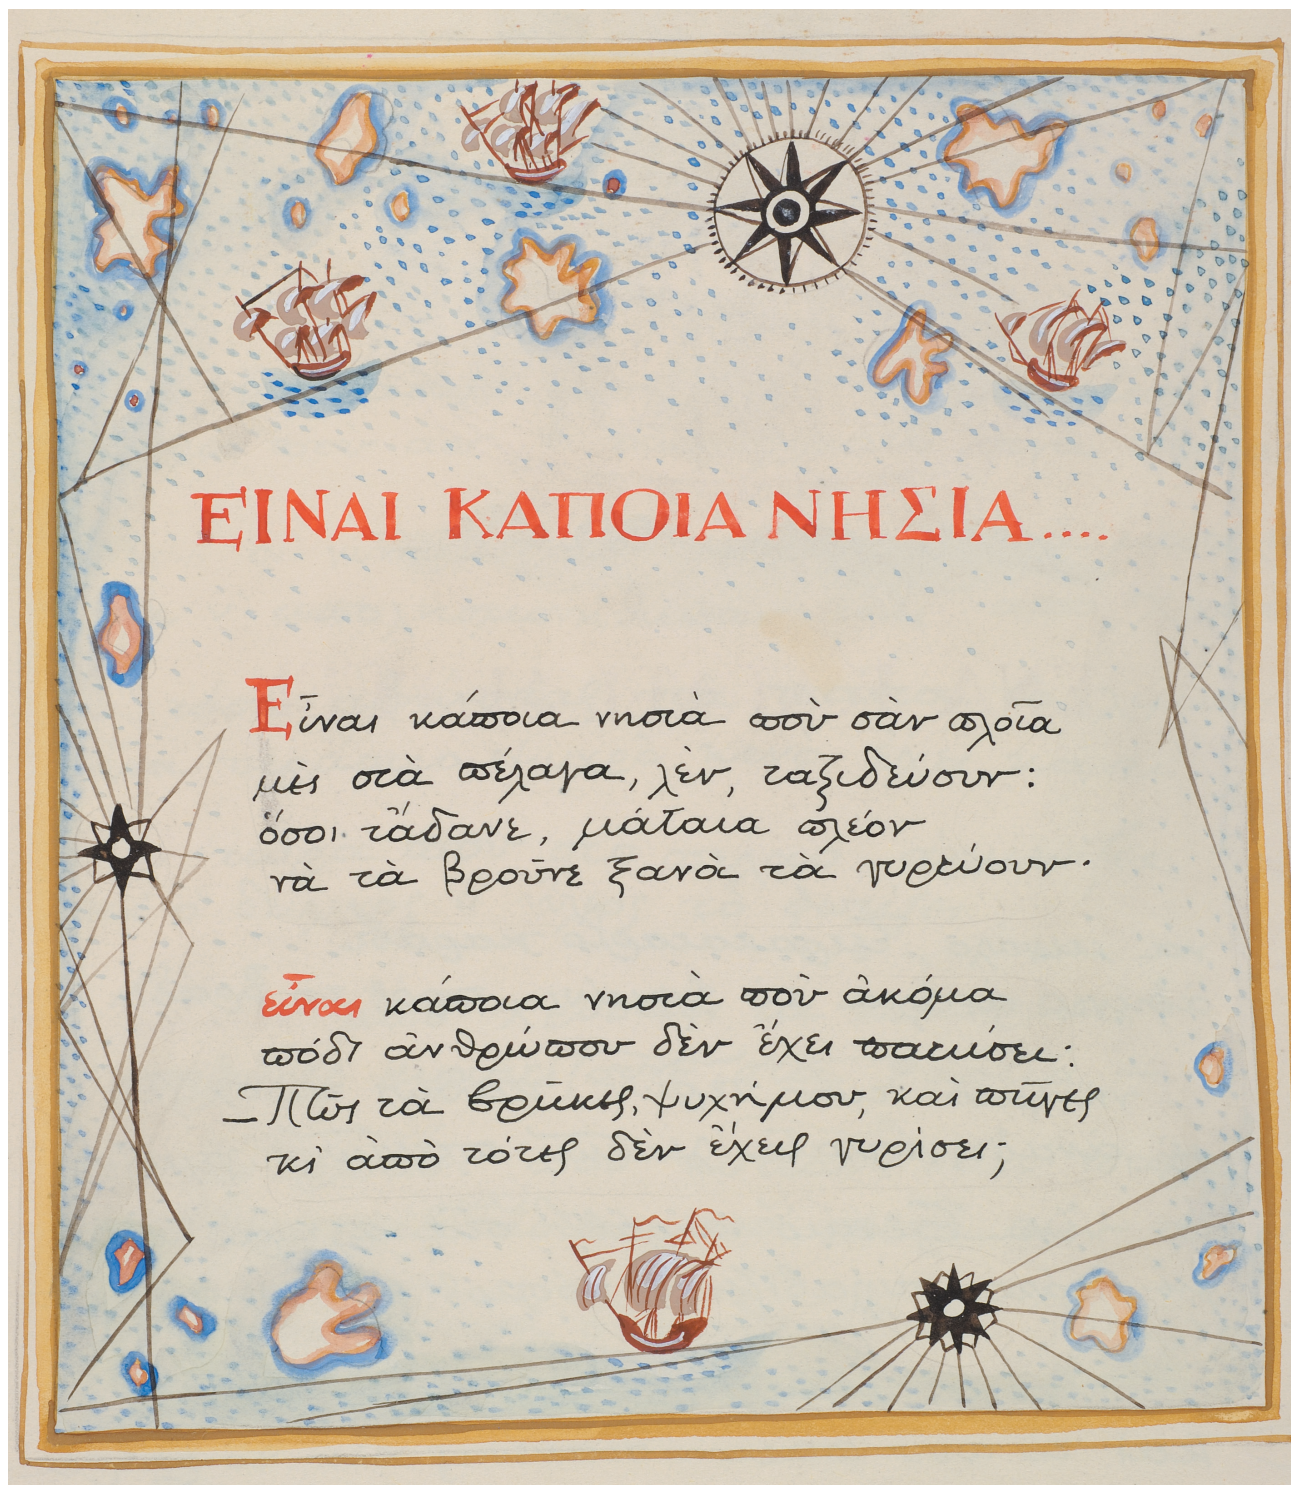 ΕΙΝΑΙ ΚΑΠΟΙΑ ΝΗΣΙΑ....
Εἶναι κάποια νησιὰ ποὺ σὰν πλοῖα
μὲς στὰ πέλαγα, λὲν, ταξιδεύουν:
ὅσοι τἄδανε, μάταια πλέον
νὰ τὰ βροῦνε ξανὰ τὰ γυρεύουν.
εἶναι κάποια νησιὰ ποὺ ἀκόμα
πόδι ἀνθρώπου δὲν ἔχει πατήσει:
_Πῶς τὰ βρῆκες, ψυχή μου, καὶ πῆγες
κι ἀπὸ τότες δὲν ἔχεις γυρίσει;